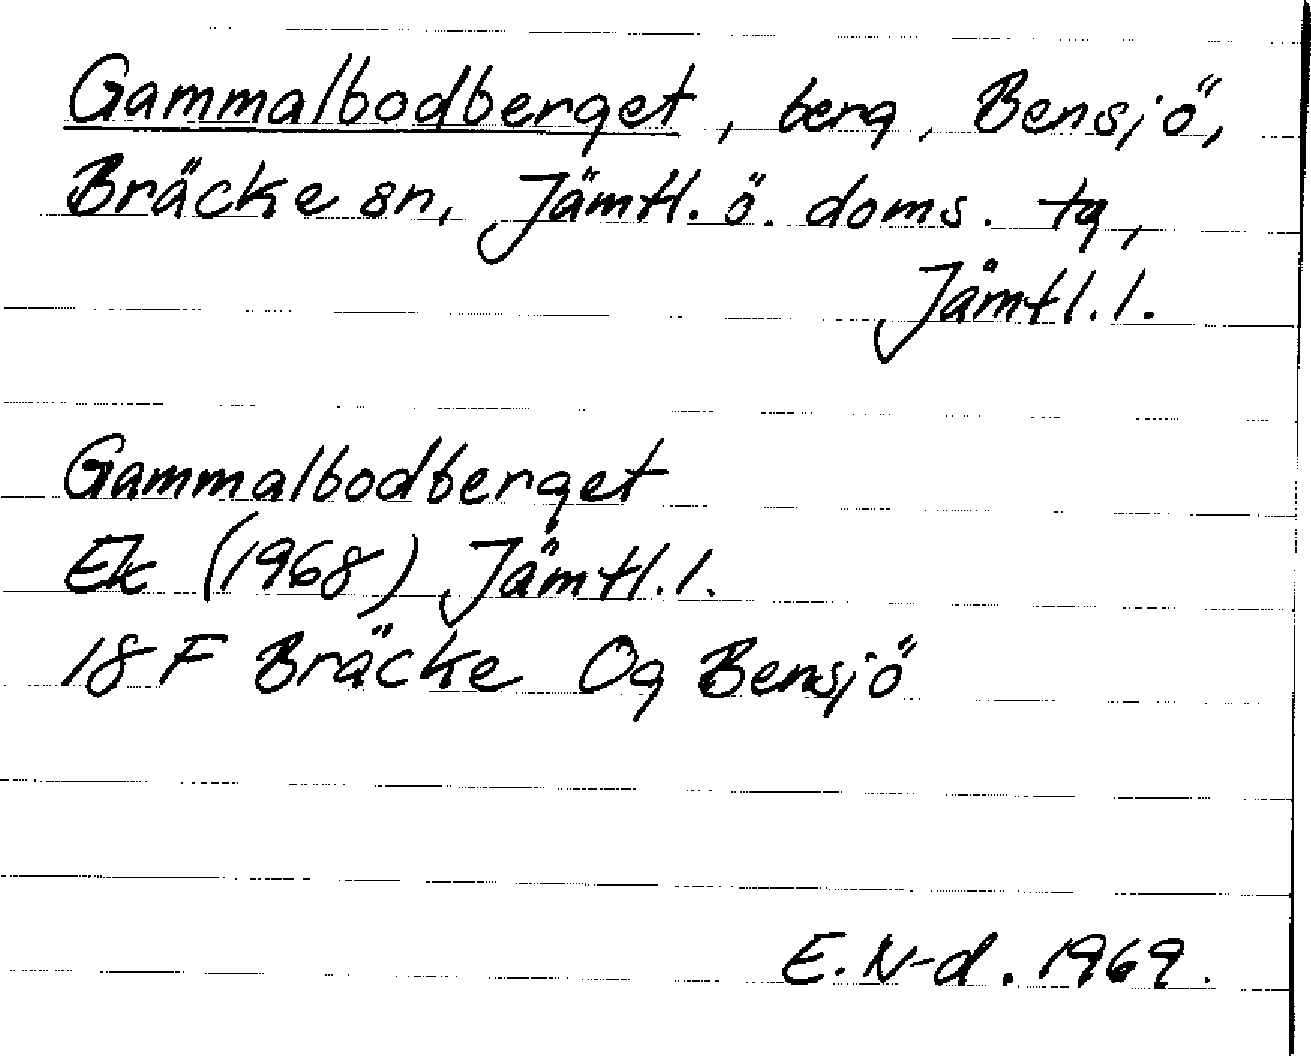 Gammalbodberget, berg, Bensjö,
Bräcke sn, Jämtl. ö. doms. tg,
Jämtl. l.
Gammalbodberget
Ek (1968) Jämtl. l.
18 F Bräcke Og Bensjö
E. N-d. 1969.